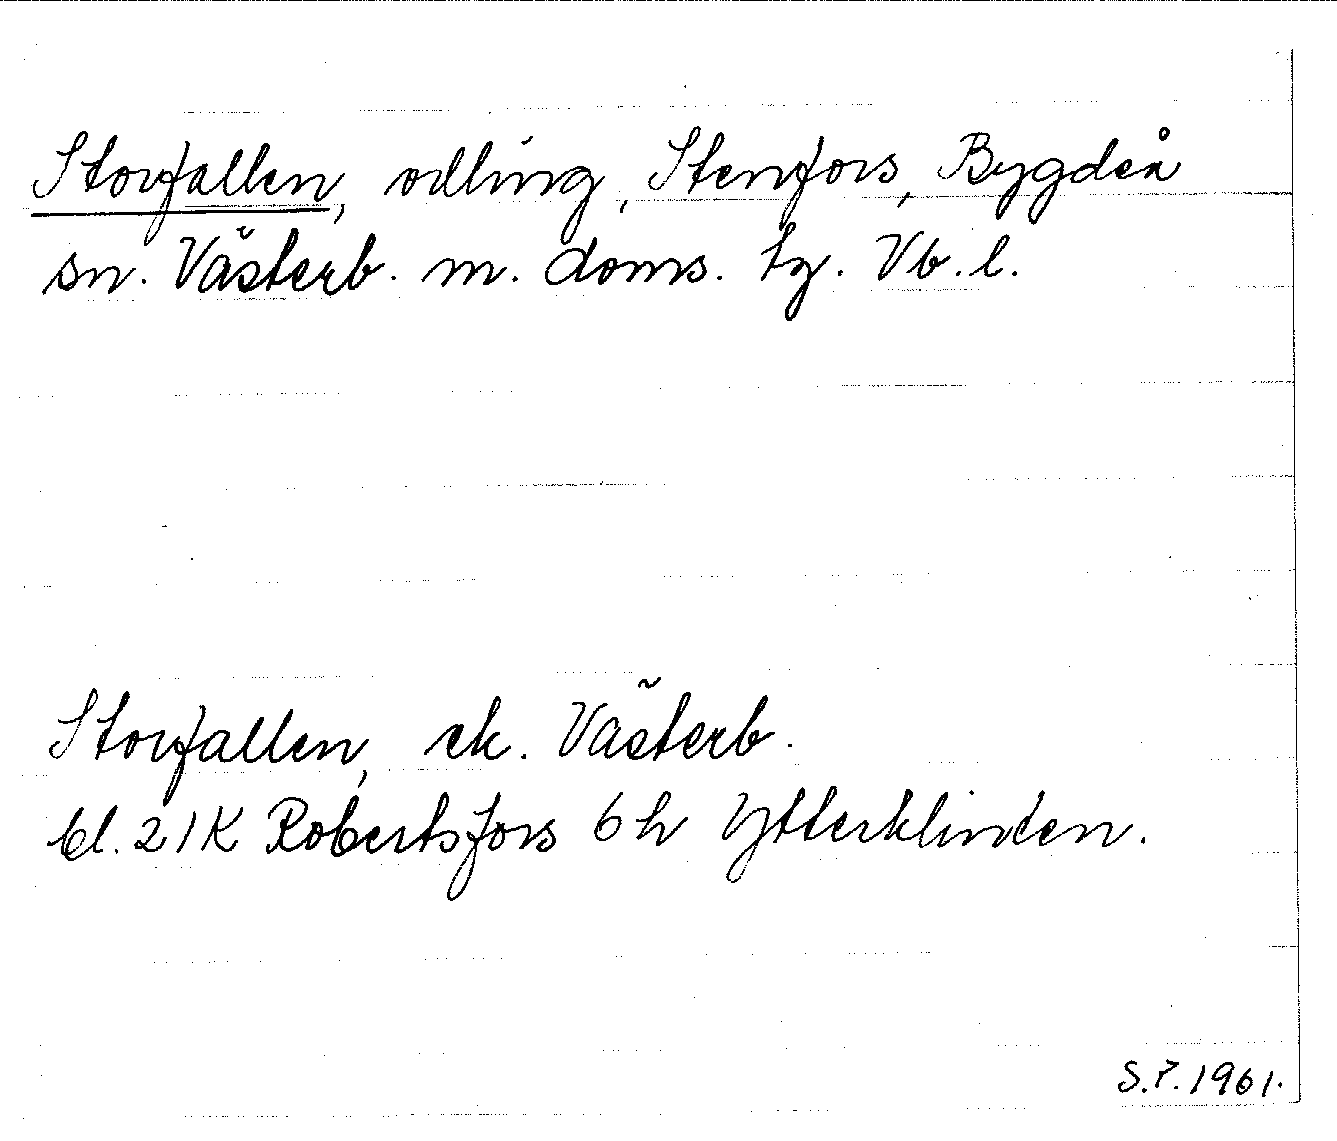 Storfallen, odling, Stenfors, Bygdeå
sn. Västerb. m. doms. tg. Vb. l.
Storfallen, ek. Västerb.
bl. 21K Robertsfors 6 h Ytterklinten.
S.P. 1961.